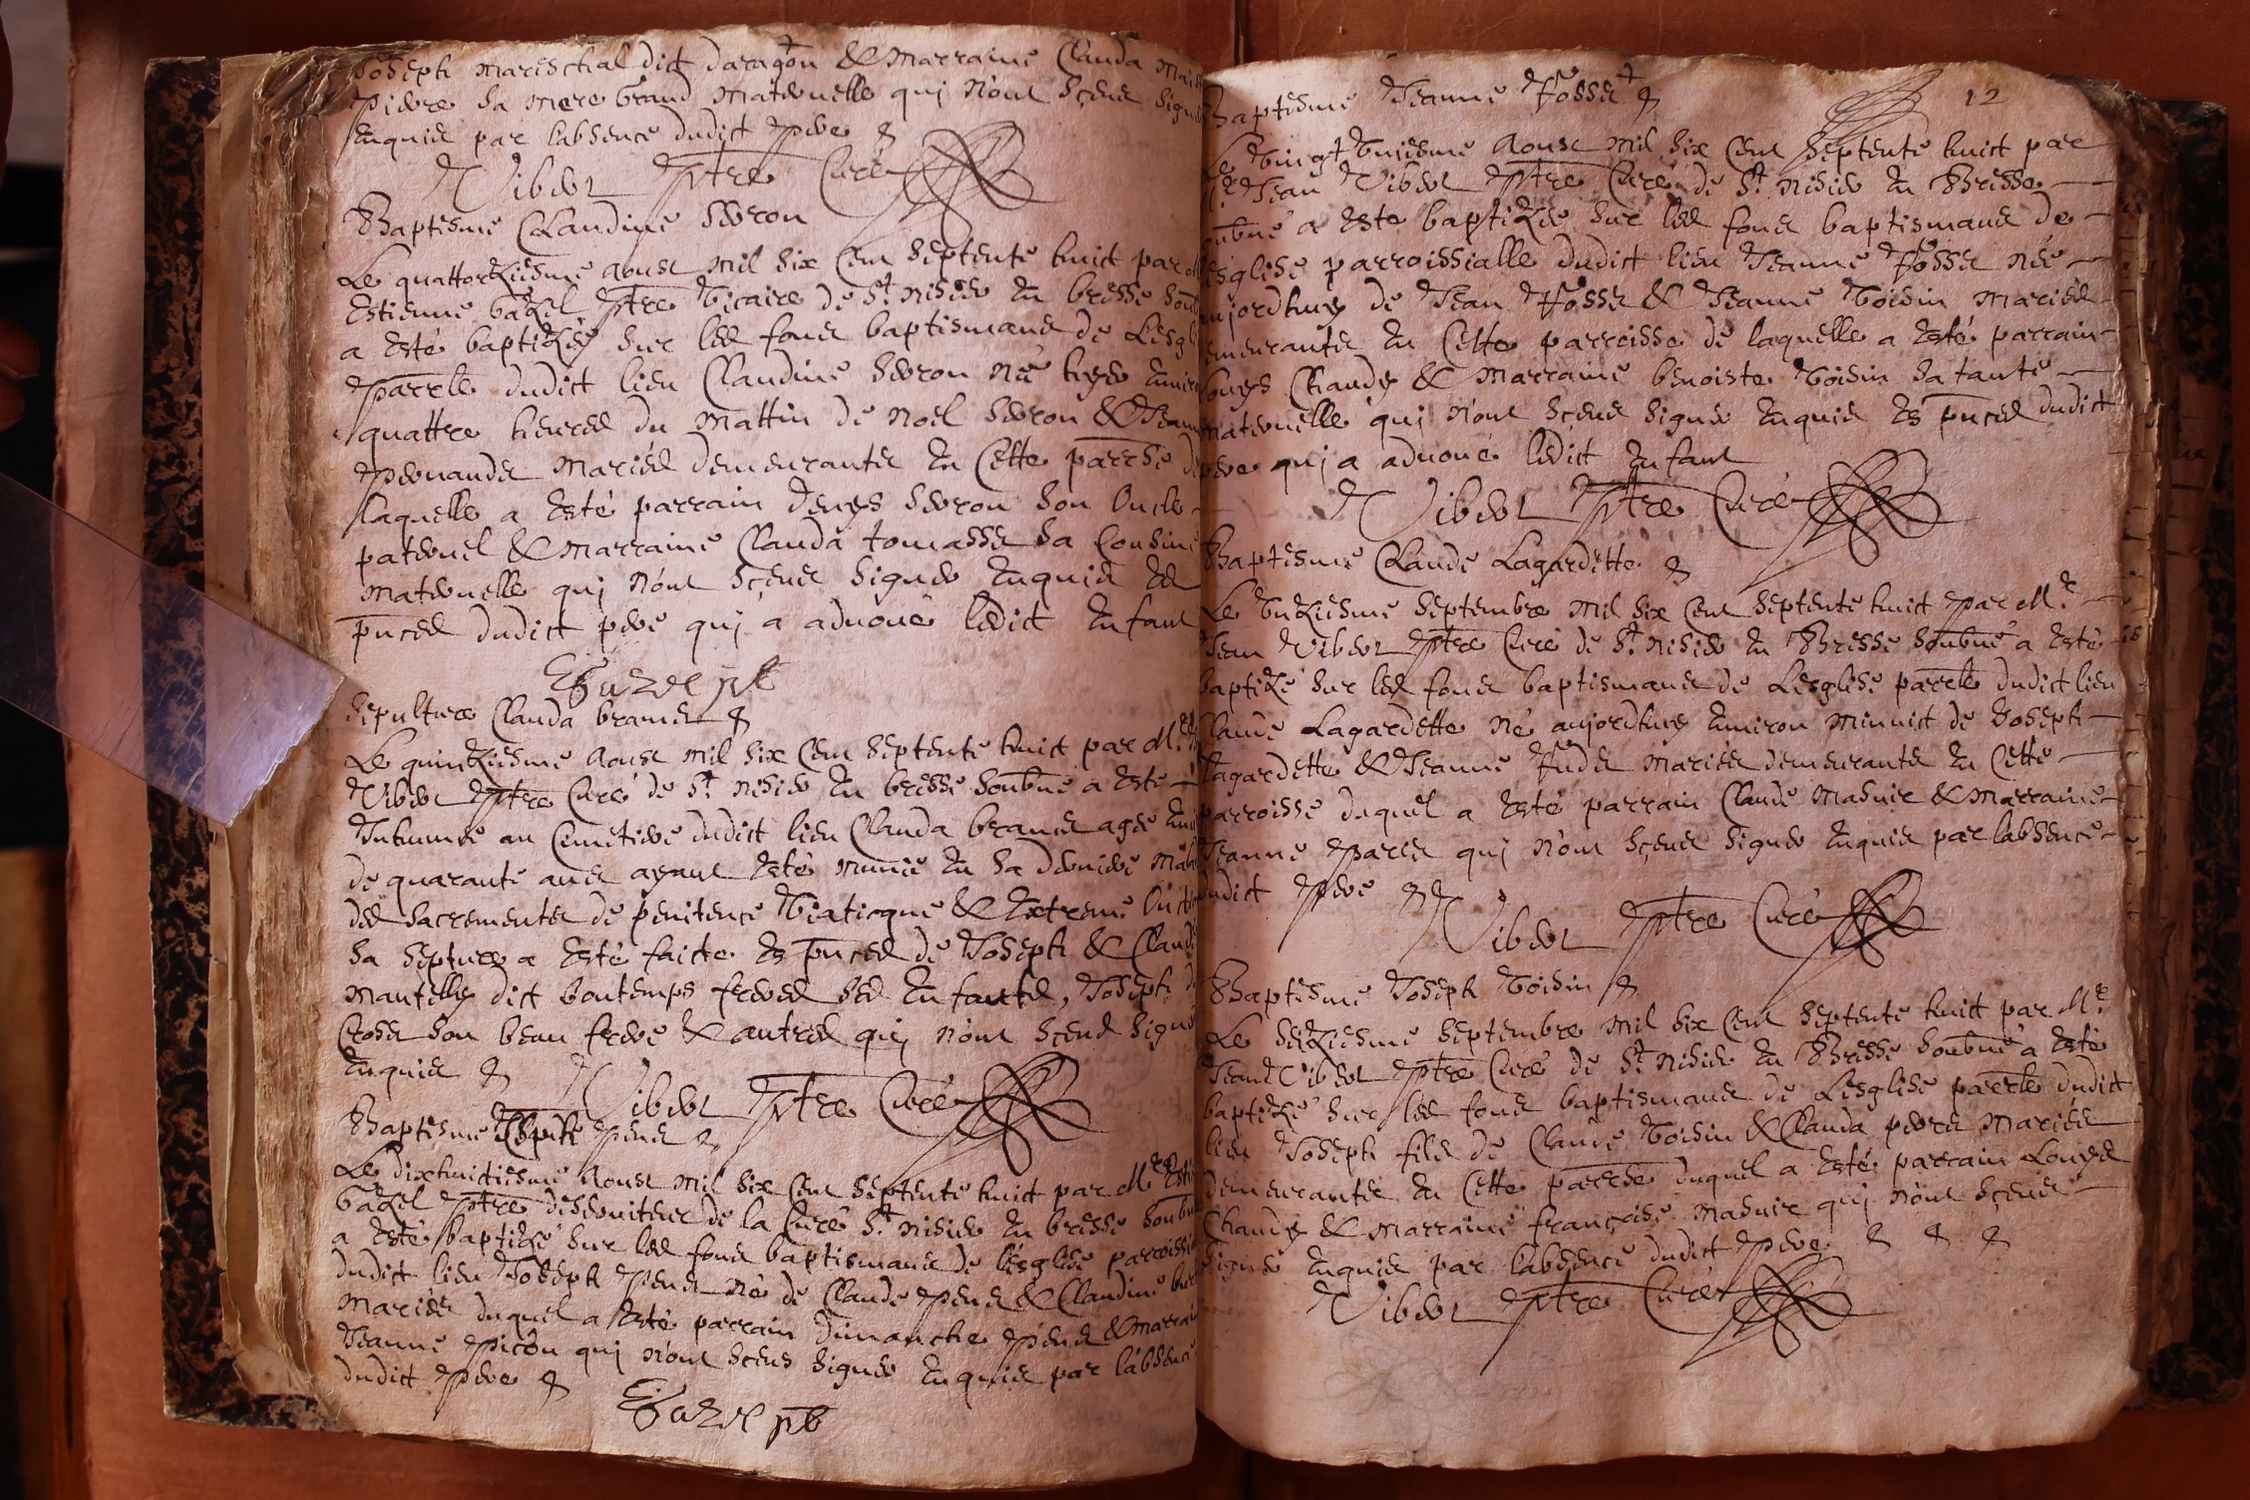 Joseph mareschal dict daragon & marraine Clauda
piere sa mere grand maternelle qui n'ont sceus signer
enquis par labsence dudict pere
Vibert ptre Curé
Baptesme Claudine seron
Le quattorziesme aoust mil six cent septente huict par
Estienne bazel ptre vicaire de st nisier en bresse
a esté baptizée sur les fonds baptismaux de
parrle dudict lieu Claudine seron née hyer
quattre heures du mattin de noel seron &
mariés demeurants en cette parrsse
laquelle a esté parrain denys seron son oncle
paternel & marraine Clauda tomasse sa cousine
maternelle qui n'ont sceus signer enquis es
pnces dudict pere qui a advoué ledict enfant
E bazel pb
sepulture Clauda brand
Le quinziesme aoust mil six cent septente huict par Mre
Vibert ptre Curé de st nisier en bresse soubné a esté
Inhumée au cemetiere dudict lieu Clauda brand agée
de quarante ans ayant esté munie en sa derniere
des sacrements de penitence viaticque & extreme
sa septure a esté faicte es pnces de Joseph &
mantelly dict bontemps freres ses enfants, Joseph
son beau frere & autres qui n'ont sceus
enquis Vibert ptre Curé
Baptesme Joseph pene
Le dixhuictiesme aoust mil six cent septente huict par Mre
bazel ptre deserviteur de la Cure st nisier en bresse
a esté baptizé sur les fonds baptismaux de lesglise
dudict lieu Joseph pene né de Claude pene & Claudine
mariés duquel a esté parrain dimanche pene &
Jeanne picon qui n'ont sceus signer enquis par labsence
dudict pere
E bazel pb
12
Baptesme Jeanne fosse
Le vingt aoust mil six cent septente huict par
Mre Jean Vibert ptre Curé de st nisier en Bresse
soubné a esté baptizée sur les fonds baptismaux de
lesglise parroissialle dudict lieu Jeanne fosse née
aujordhuy de Jean fosse & Jeanne voisin mariés
demeurants en cette parroisse de laquelle a esté parrain
Chandy & marraine benoiste voisin sa tante
maternelle qui n'ont sceus signer enquis es pnces dudict
pere qui a advoué ledict enfant
Vibert ptre Curé
Baptesme Claude Lagardette
Le unziesme septembre mil six cent septente huict par Mre
Jean Vibert ptre Curé de st nisier en Bresse soubné a esté
baptizé sur les fonds baptismaux de Lesglise parrle dudict lieu
Claude Lagardette né aujordhuy environ minuict de Joseph
Lagardette & Jeanne mariés demeurants en cette
parroisse duquel a esté parrain Claude masuir & marraine
Jeanne qui n'ont sceus signer enquis par labsence
dudict pere
Vibert ptre Curé
Baptesme Joseph voisin
Le seziesme septembre mil six cent septente huict par Mre
Jean Vibert ptre Curé de st nisier en Bresse soubné a esté
baptizé sur les fonds baptismaux de Lesglise parrle dudict
lieu Joseph fils de Claude voisin & Clauda mariés
demeurants en cette parrsse duquel a esté parrain Louys
Chandy & marraine françoise masuir qui n'ont sceus
signer enquis par labsence dudict pere
Vibert ptre Curé